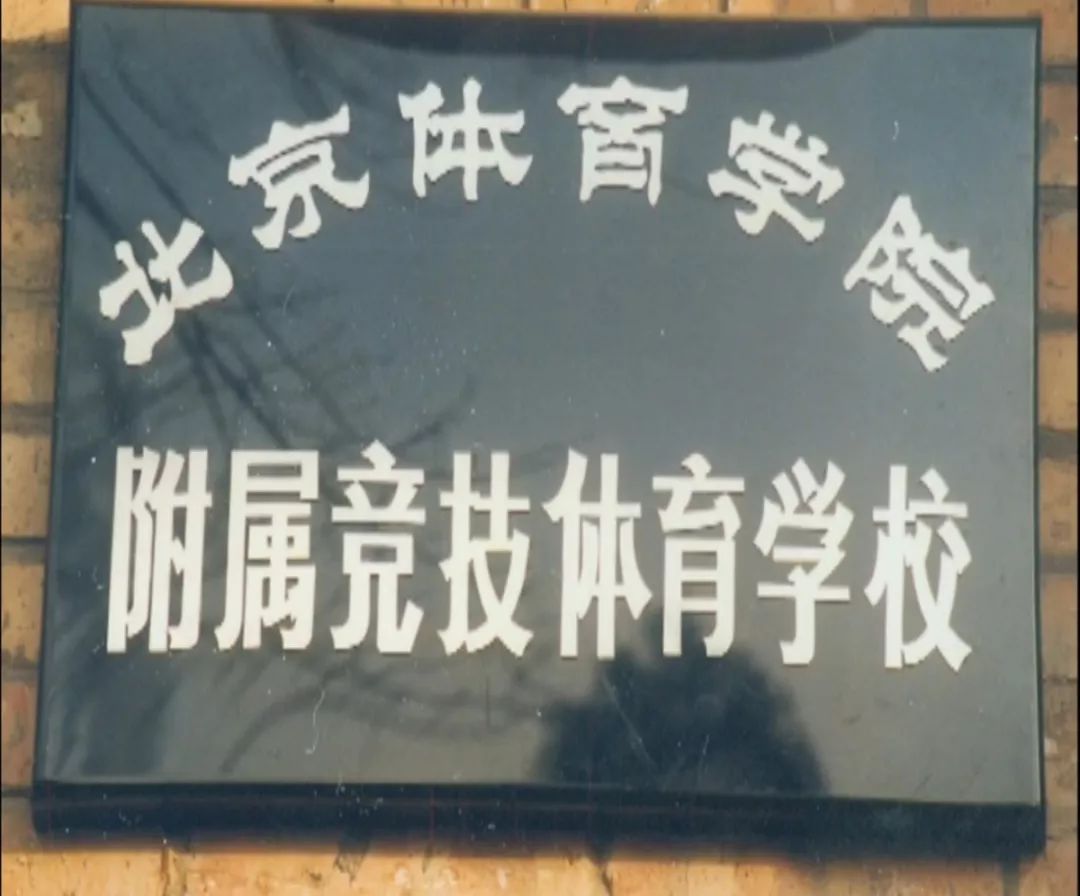 北京体育学院
附属竞技体育学校